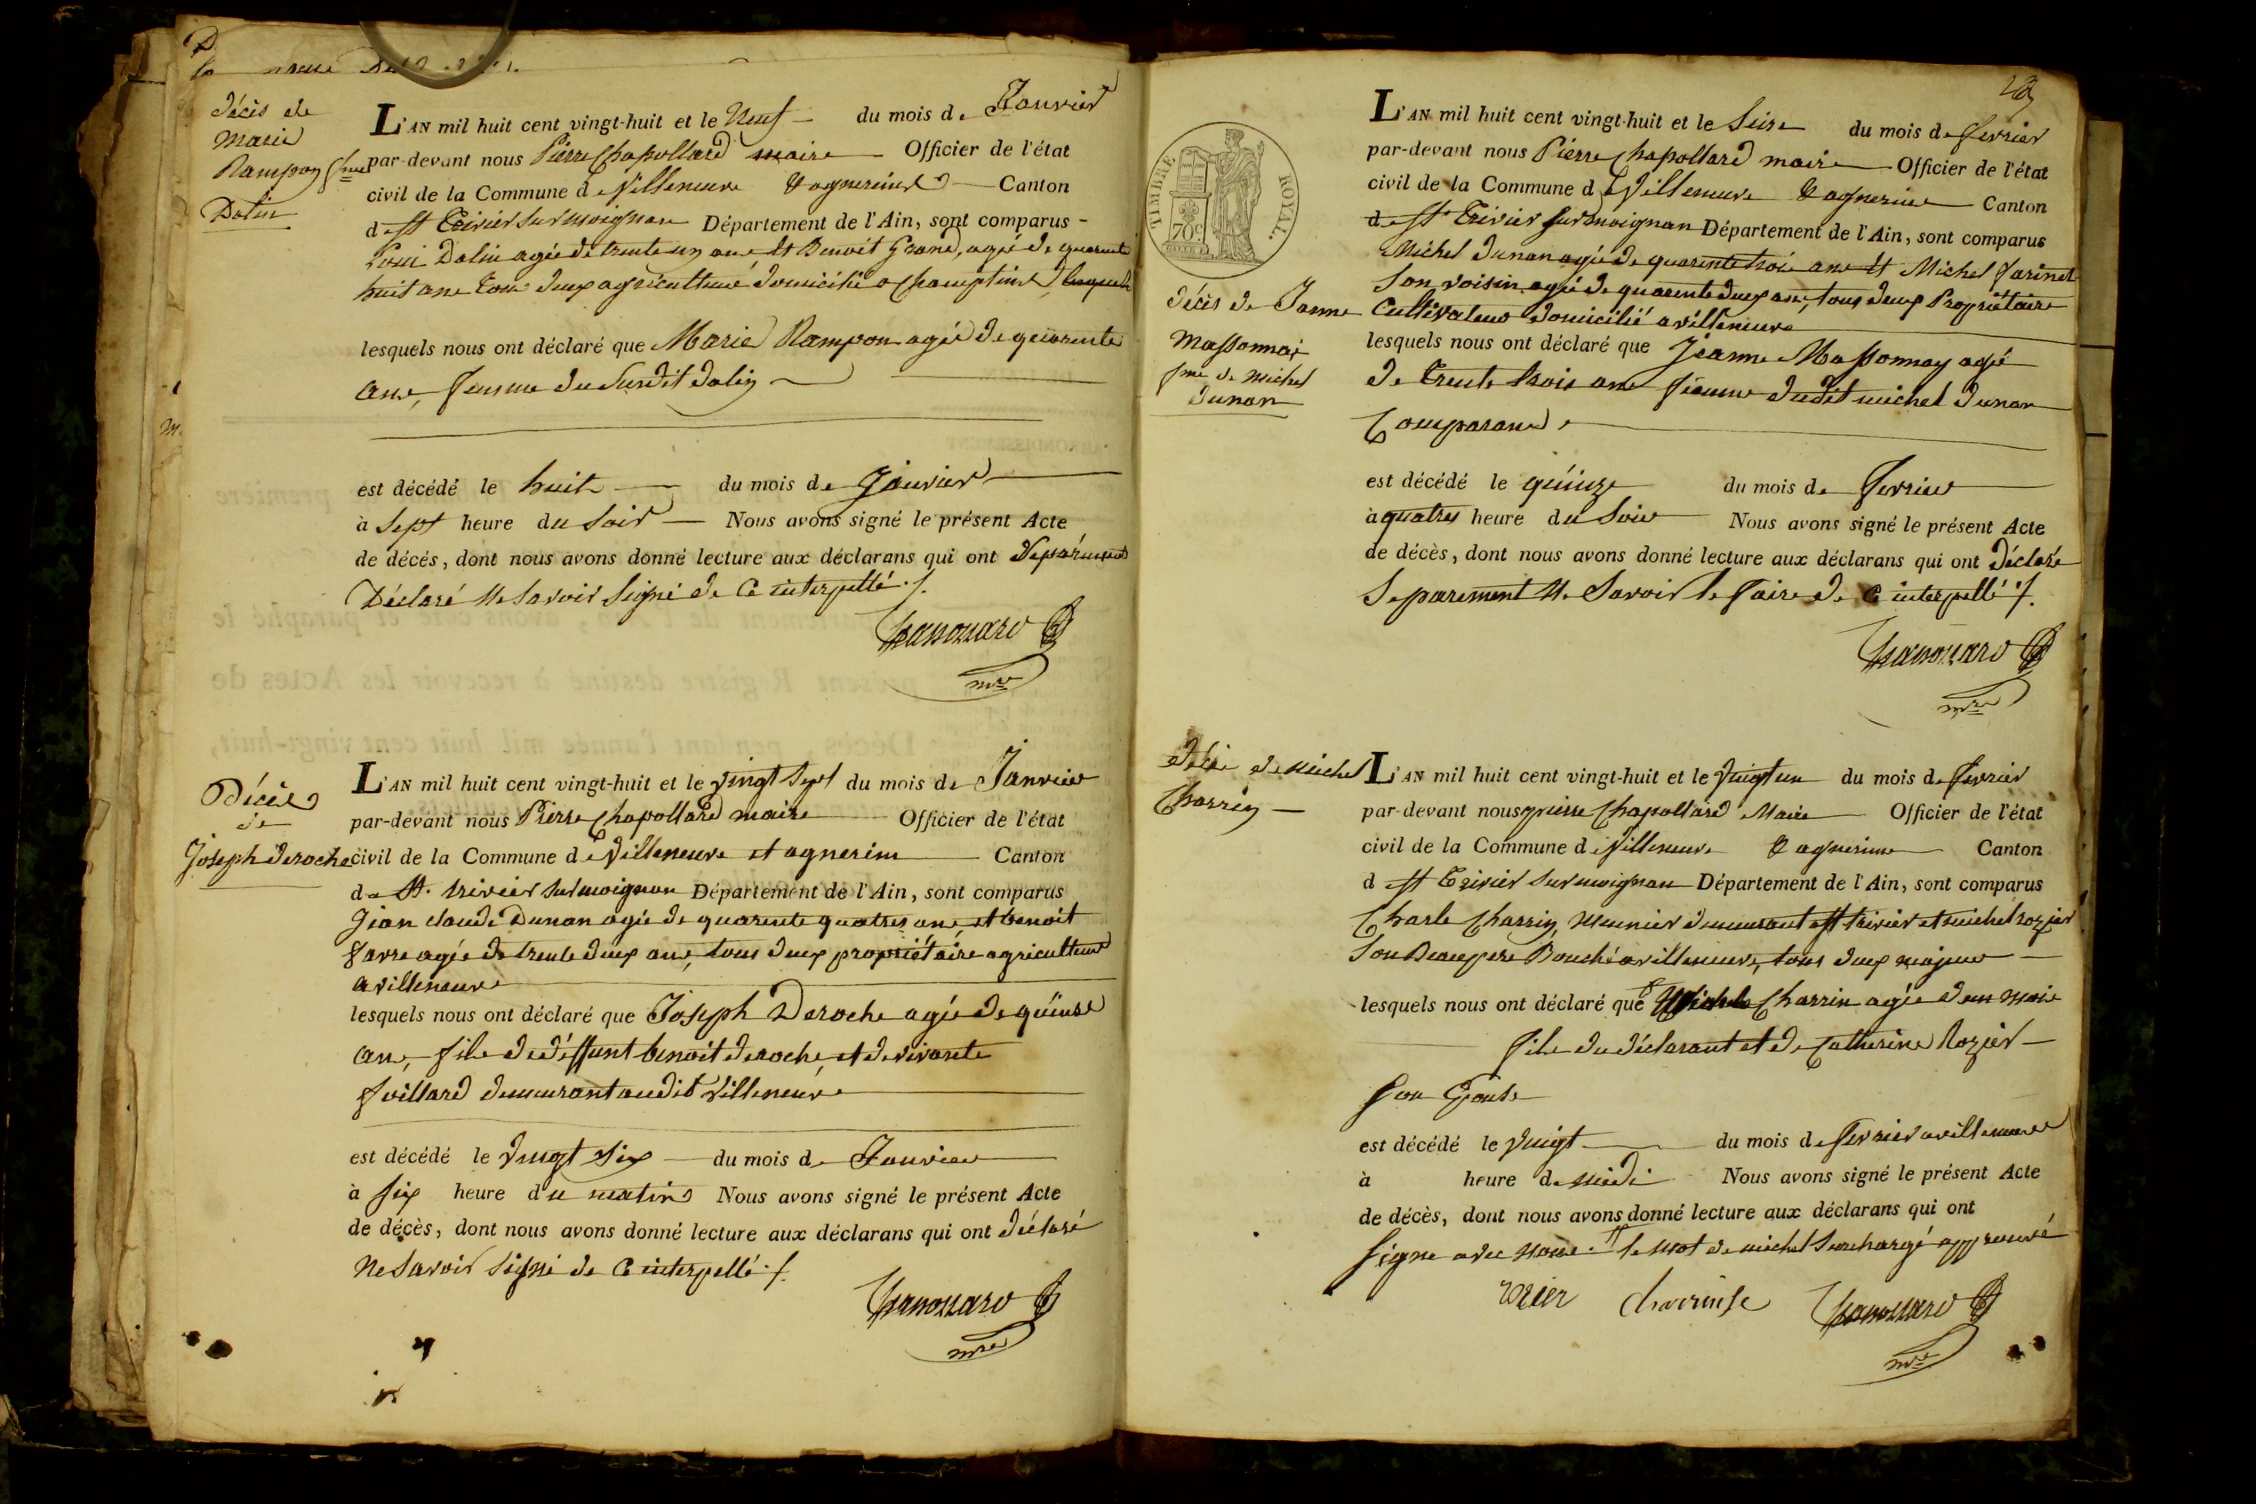 décès de
Marie
Rampon fme
Dalin
L'AN mil huit cent vingt-huit et le Neuf du mois de Janvier
par-devant nous Pierre Chapollard maire Officier de l'état
civil de la Commune de Villeneuve & agnereins Canton
de St Trivier sur moignan Département de l'Ain, sont comparus
Loui Dalin agée de trente un ans et Benoit Grand, agée de quarente
huit ans tous deux agriculteurs domicilié a Champtins
lesquels nous ont déclaré que Marie Rampon agée de quarente
ans, femme du susdit dalin
est décédé le huit du mois de Janvier
à Sept heure du Soir Nous avons signé le présent Acte
de décès, dont nous avons donné lecture aux déclarans qui ont Séparément
Déclaré Ne Savoir Signé de Ce interpellé ./.
Chapollard
mre
Décès
de
Joseph deroche
L'AN mil huit cent vingt-huit et le vingt Sept du mois de Janvier
par-devant nous Pierre Chapollard maire Officier de l'état
civil de la Commune de Villeneuve et agnerins Canton
de St. trivier sur moignan Département de l'Ain, sont comparus
Jean claude Dunan agée de quarente quatres ans, et benoit
favre agée de trente deux ans, tous deux propriétaire agriculteurs
a villeneuve
lesquels nous ont déclaré que Joseph Deroche agée de quinse
ans, fils de déffunt benoit deroche, et de vivante
fvillard demeurant audit villeneuve
est décédé le vingt Six du mois de Janvier
à Six heure du matin Nous avons signé le présent Acte
de décès, dont nous avons donné lecture aux déclarans qui ont déclaré
Ne Savoir Signé de Ce interpellé ./.
Chapollard
mre
TIMBRE ROYAL.
70c
décès de Janne
Massonnai
fme de Michel
dunan
L'AN mil huit cent vingt-huit et le Seise du mois de fevrier
par-devant nous Pierre Chapollard maire Officier de l'état
civil de la Commune de Villeneuve & agnerins Canton
de St Trivier sur moignan Département de l'Ain, sont comparus
Michel dunan agée de quarente trois ans et Michel farinet
Son voisin agée de quarente deux ans, tous deux Propriétaire
Cultivateurs domicilié a villeneuve
lesquels nous ont déclaré que Jeanne Massonnay agé
de trente trois ans femme dudit michel dunan
Comparand
est décédé le quinze du mois de fevrier
à quatres heure du Soir Nous avons signé le présent Acte
de décès, dont nous avons donné lecture aux déclarans qui ont déclaré
Separement Ne Savoir le faire de Ce interpellé ./.
Chapollard
mre
de Michel
Charrin
L'AN mil huit cent vingt-huit et le vingt un du mois de fevrier
par-devant nous pierre Chapollard Maire Officier de l'état
civil de la Commune de Villeneuve & agnerins Canton
de St Trivier sur moignan Département de l'Ain, sont comparus
Charle Charrin, Meunier demeurant a St trivier et michel rozier
Son Beaupere Bouché a villeneuve, tous deux majeurs
lesquels nous ont déclaré que Michel Charrin agée d'un mois
fils du déclarant et de Catherine Rozier
Son Epouse
est décédé le vingt du mois de fevrier a villeneuve
à heure de midi Nous avons signé le présent Acte
de décès, dont nous avons donné lecture aux déclarans qui ont
Signe avec nous. le mot de michel Surchargé approuvé
Chapollard
mre